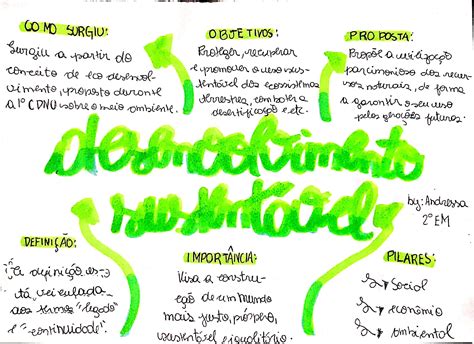 COMO SURGIU:
Surgiu a partir do
conceito de eco desenvol-
vimento, proposto durante
a 1ª CDNU sobre o meio ambiente.
OBJETIVOS:
Proteger, recuperar
e promover o uso sus-
tentável dos ecossistemas
terrestres, combater a
desertificação e etc.
PROPOSTA:
Propõe a utilização
parcimoniosa dos recur-
sos naturais, de forma
a garantir o seu uso
pelas gerações futuras.
desenvolvimento
sustentável
by: Andressa
2º EM
DEFINIÇÃO:
A definição es-
tá veiculada
aos termos "legado"
e "continuidade".
IMPORTÂNCIA:
Visa a constru-
ção de um mundo
mais justo, próspero,
sustentável e igualitário.
PILARES:
Social
econômio
ambiental